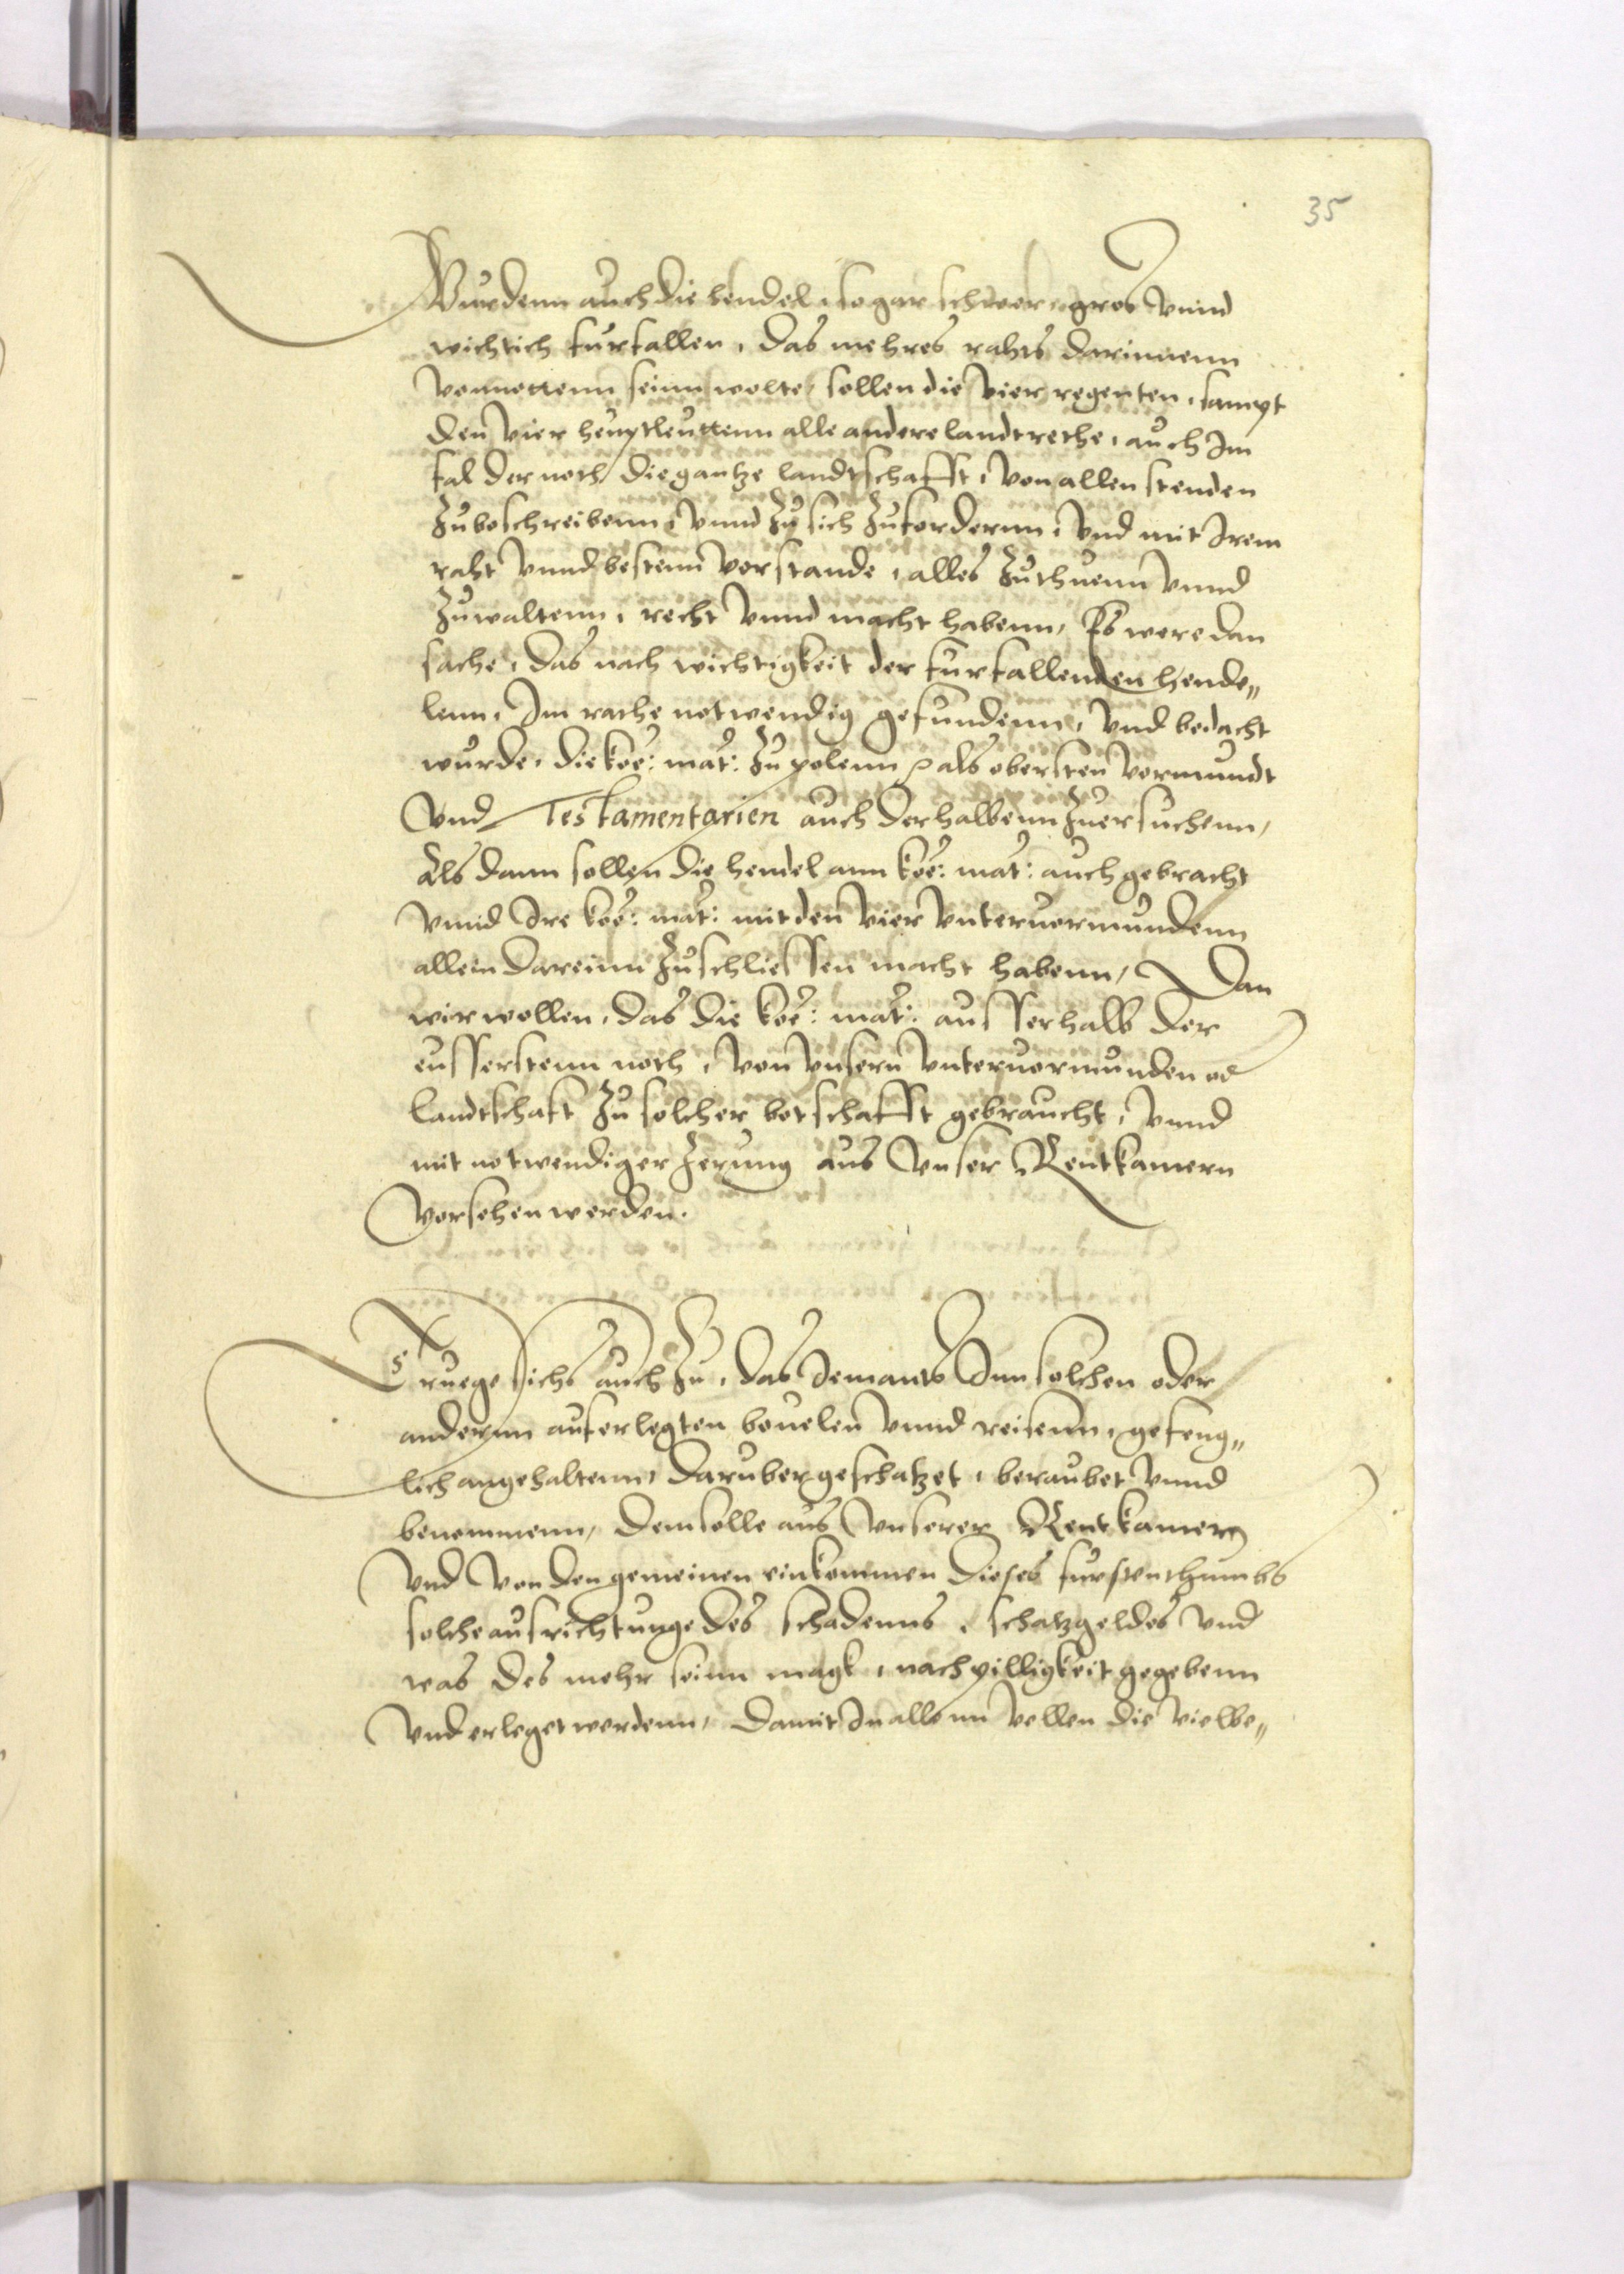 35
Wurdenn auch die hendel, so gar schwer, gros vnnd
wichtich furfallen, das mehres rahts darinnenn
vonnottenn seinn wolte, sollen die vier regenten, sampt
den vier heuptleuttenn alle andere landtrethe, auch Im
fal der noth, die gantze landtschafft, von allen stenden
zubeschreibenn, vnnd zu sich zufordernn, vnd mit Irem
raht vnnd bestenn verstande, alles zuthuenn vnnd
zuwaltenn, recht vnnd macht habenn, Es were dan
sache, das nach wichtigkeit der furfallenden hende„
lenn, Im rathe notwendig gefundenn, vnd bedacht
wurde, die koe: mat: zu polenn als obersten vormundt
vnd Testamentarien auch derhalbenn zuersuchenn,
Als dann sollen die hendel ann koe: mat: auch gebracht
vnnd Ire koe: mat: mit den vier vnteruormundenn
allein dareinn zuschliessen macht habenn, Dan
wir wollen, das die koe: mat: ausserhalb der
eusserstenn noth, von vnsern vnteruormunden od
landtschaft zu solcher botschafft gebraucht, vnnd
mit notwendiger zerung aus vnser Rentkamern
vorsehen werden.
Truege sichs auch zu, das Jemants Inn solchen oder
andernn auferlegten beuelen vnnd reisenn, gefeng„
lich angehaltenn, daruber geschatzet, beraubet vnnd
benommenn, dem solle aus vnserer Rentkamern
vnd von den gemeinen einkommen dieses furstenthumbs
solche ausrichtunge des schadenns, schatzgeldes vnd
was des mehr seinn magk, nach pilligkeit gegebenn
vnd erleget werdenn, Damit In allenn vellen die vielbe„